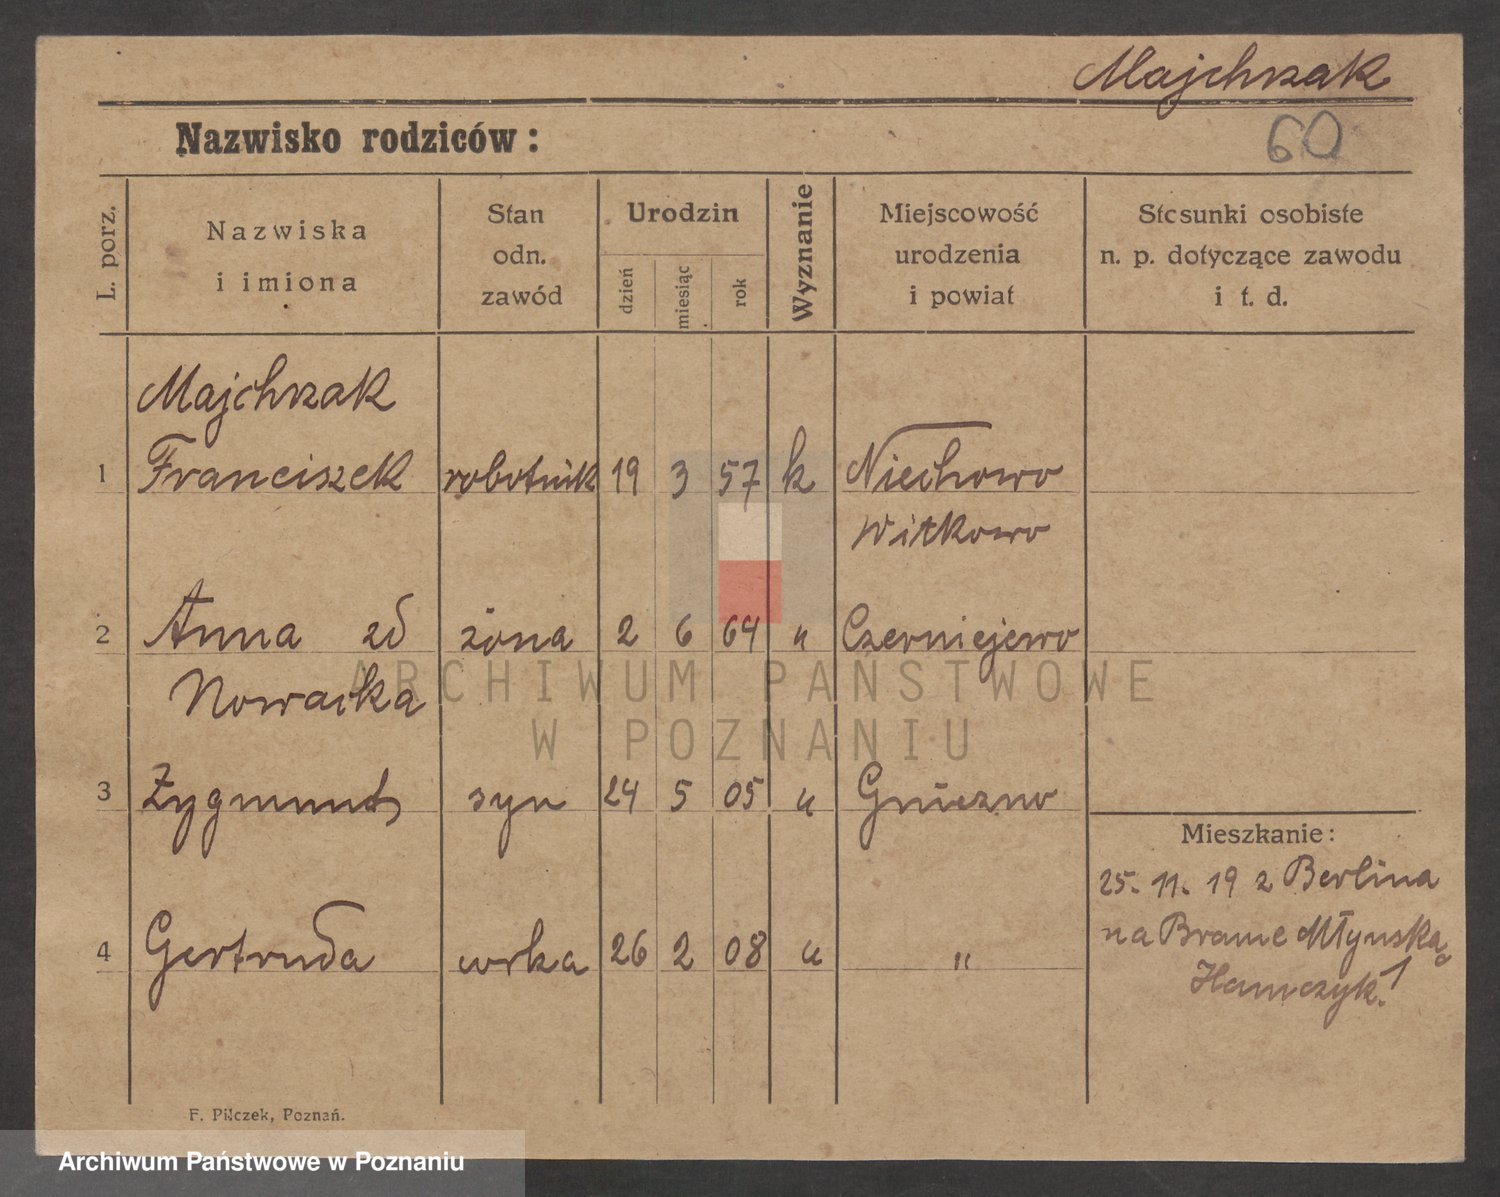 Majchrzak
Nazwisko rodziców:
60
L. porz.
Nazwiska
i imiona
Stan
odn.
zawód
Urodzin
dzień
miesiąc
rok
Wyznanie
Miejscowość
urodzenia
i powiat
Stosunki osobiste
n. p. dotyczące zawodu
i t. d.
Majchrzak
1 Franciszek robotnik 19 3 57 k Niechowo
Witkowo
2 Anna zd żona 2 6 64 " Czerniejewo
Nowacka
3 Zygmunt syn 24 5 05 " Gniezno
Mieszkanie:
25. 11. 19 z Berlina
na Brame Młynską
1
Hamczyk.
4 Gertruda córka 26 2 08 " "
F. Pilczek, Poznań.
ARCHIWUM PAŃSTWOWE
W POZNANIU
Archiwum Państwowe w Poznaniu